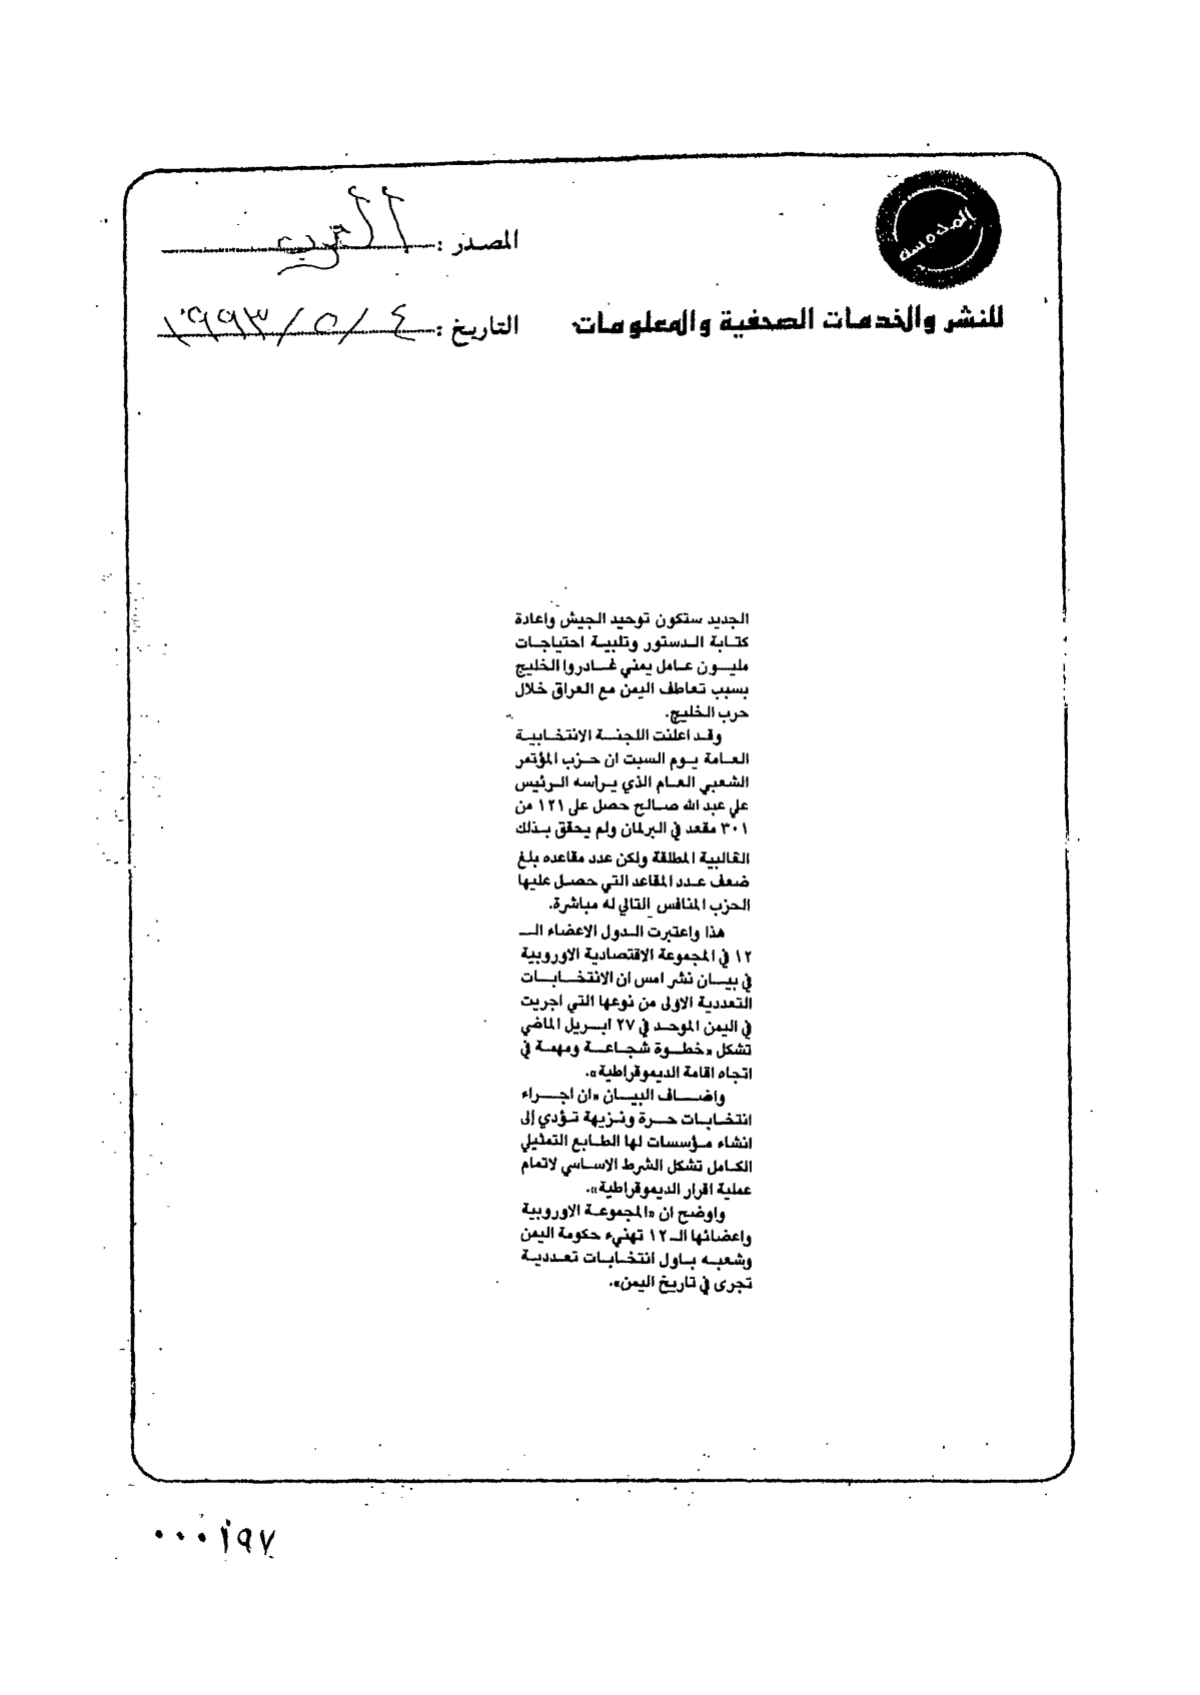 المصدر : العرب
التاريخ : ٤ / ٥ / ١٩٩٣
للنشر والخدمات الصحفية والمعلومات
الجديد ستكون توحيد الجيش واعادة
كتابة الدستور وتلبية احتياجات
مليون عامل يمني غادروا الخليج
بسبب تعاطف اليمن مع العراق خلال
حرب الخليج.
وقد اعلنت اللجنة الانتخابية
العامة يوم السبت ان حزب المؤتمر
الشعبي العام الذي يرأسه الرئيس
علي عبد الله صالح حصل على ١٢١ من
٣٠١ مقعد في البرلمان ولم يحقق بذلك
الغالبية المطلقة ولكن عدد مقاعده بلغ
ضعف عدد المقاعد التي حصل عليها
الحزب المنافس التالي له مباشرة.
هذا واعتبرت الدول الاعضاء الـ
١٢ في المجموعة الاقتصادية الاوروبية
في بيان نشر امس ان الانتخابات
التعددية الاولى من نوعها التي اجريت
في اليمن الموحد في ٢٧ ابريل الماضي
تشكل «خطوة شجاعة ومهمة في
اتجاه اقامة الديموقراطية».
واضاف البيان «ان اجراء
انتخابات حرة ونزيهة تؤدي إلى
انشاء مؤسسات لها الطابع التمثيلي
الكامل تشكل الشرط الاساسي لاتمام
عملية اقرار الديموقراطية».
واوضح ان «المجموعة الاوروبية
واعضائها الـ ١٢ تهنيء حكومة اليمن
وشعبه باول انتخابات تعددية
تجرى في تاريخ اليمن».
٠٠٠١٩٧